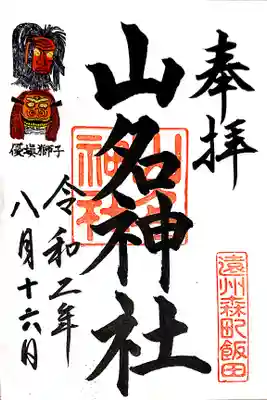 奉拝
山名神社
山名神社
遠州森町飯田
令和二年
八月十六日
優填獅子